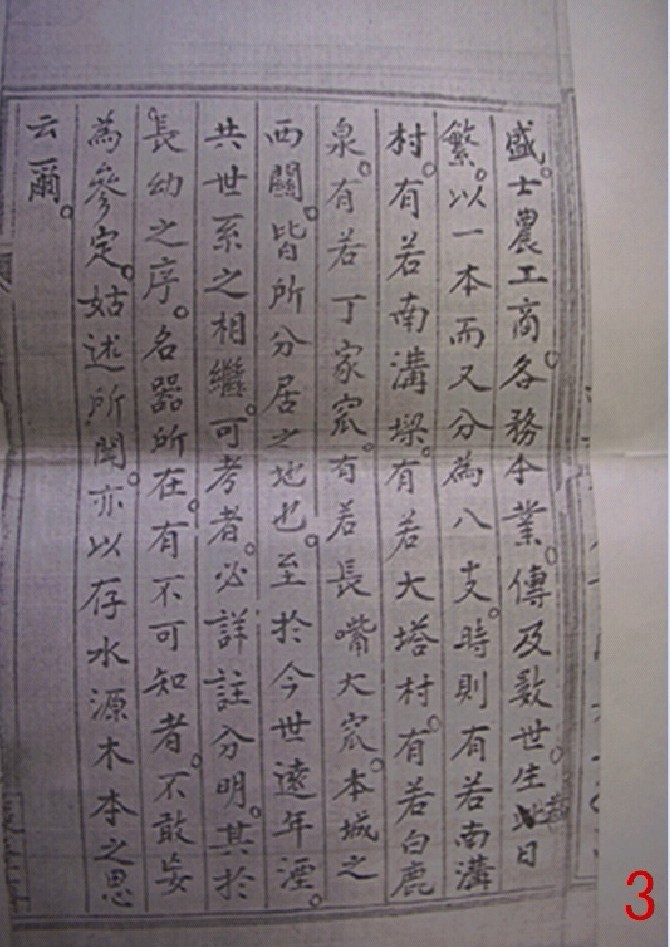 盛。士農工商。各務今業。傳及數世。生齒日
繁。以一本而又分為八支。時則有若南溝
村。有若南溝墚。有若大塔村。有若白鹿
泉。有若丁家窊。有若長嘴大窊。本城之
西關。皆所分居之地也。至於今世遠年湮。
共世系之相繼。可考者。必詳註分明。其於
長幼之序。名器所在。有不可知者。不敢妄
為參定。姑述所聞。亦以存水源木本之思
云爾。
3